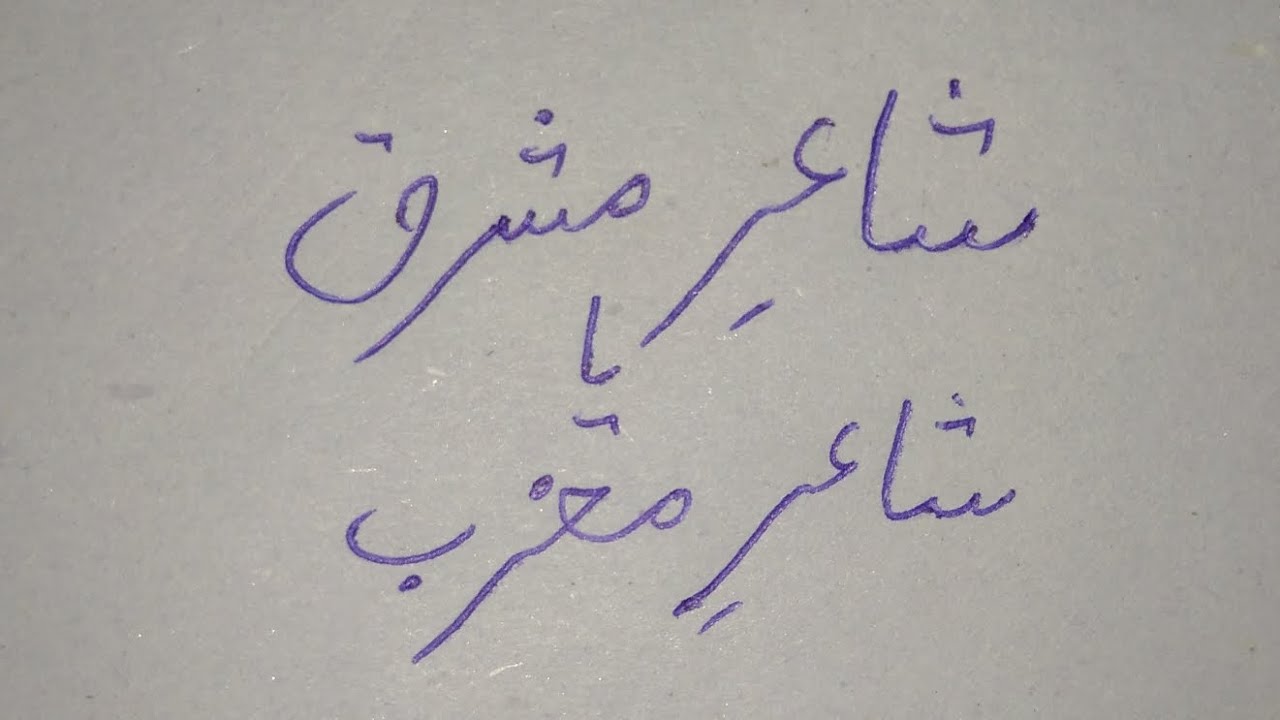 شاعرِ مشرق
یا
شاعرِ مغرب